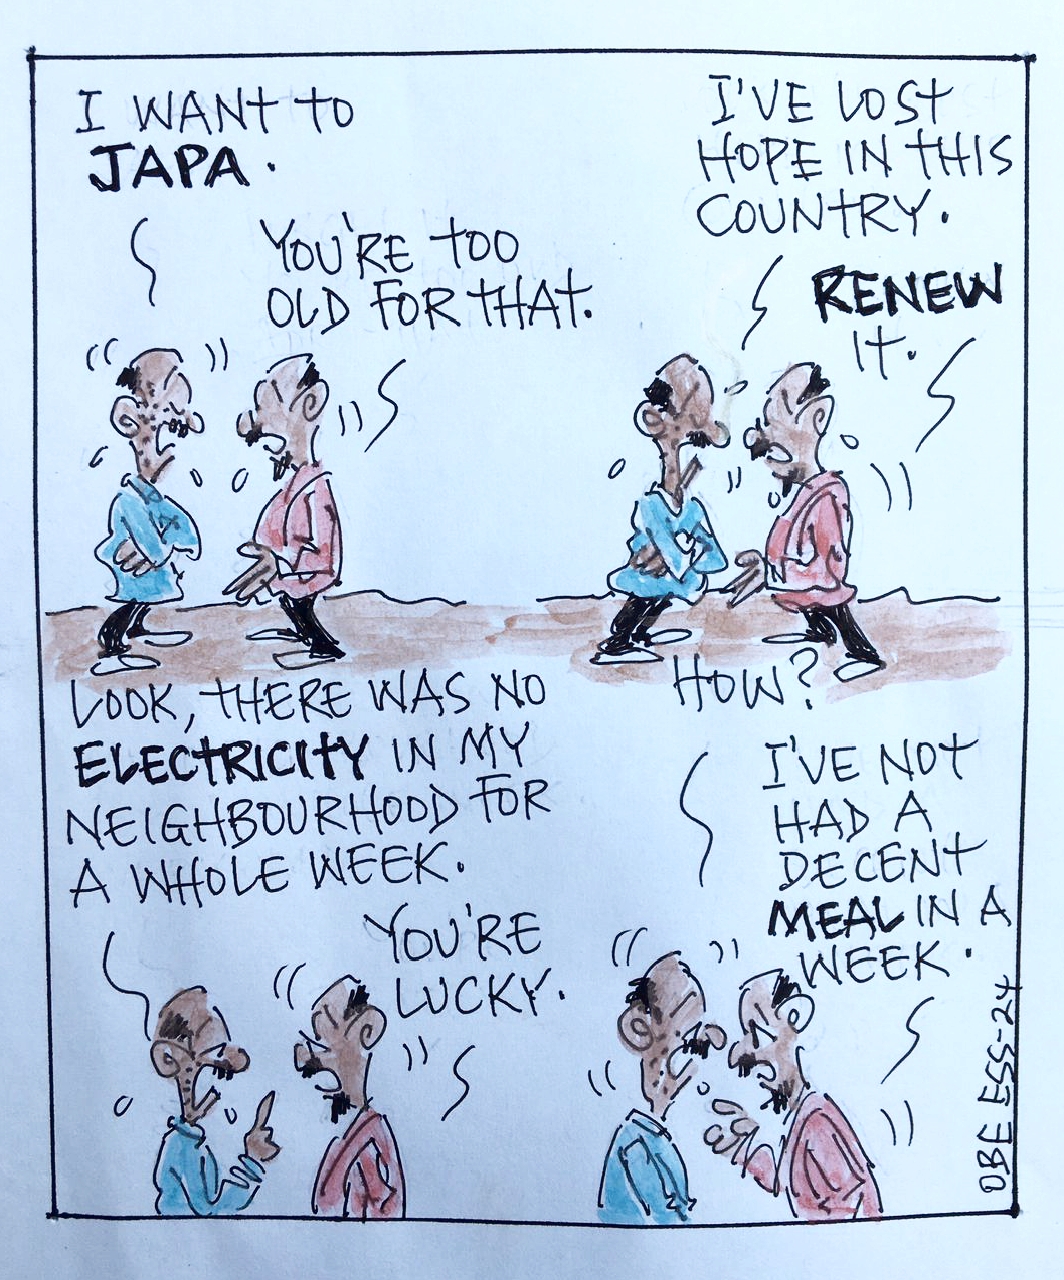 I WANT TO
JAPA.
YOU'RE TOO
OLD FOR THAT.
I'VE LOST
HOPE IN THIS
COUNTRY.
RENEW
IT.
LOOK, THERE WAS NO
ELECTRICITY IN MY
NEIGHBOURHOOD FOR
A WHOLE WEEK.
YOU'RE
LUCKY.
HOW?
I'VE NOT
HAD A
DECENT
MEAL IN A
WEEK.
OBE ESS-24